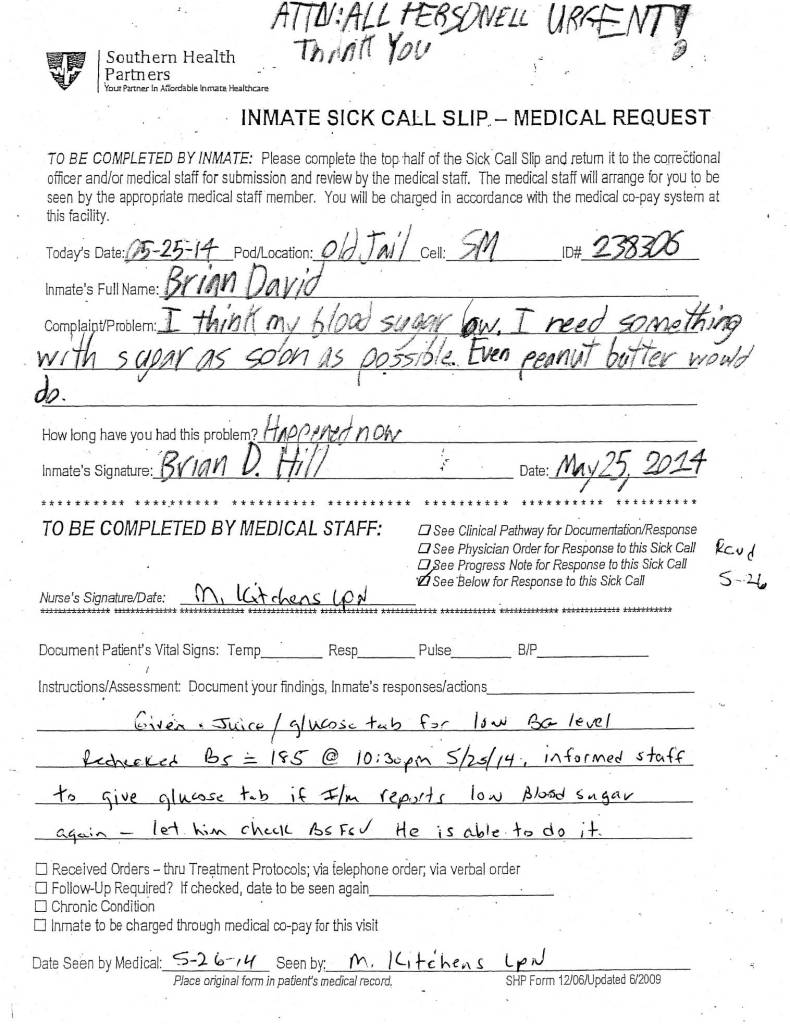 ATTN: ALL PERSONELL URGENT!
Thank You
Southern Health
Partners
Your Partner In Affordable Inmate Healthcare
INMATE SICK CALL SLIP – MEDICAL REQUEST
TO BE COMPLETED BY INMATE: Please complete the top half of the Sick Call Slip and return it to the correctional
officer and/or medical staff for submission and review by the medical staff. The medical staff will arrange for you to be
seen by the appropriate medical staff member. You will be charged in accordance with the medical co-pay system at
this facility.
Today's Date: 05-25-14 Pod/Location: Old Jail Cell: SM ID# 238306
Inmate's Full Name: Brian David
Complaint/Problem: I think my blood sugar low. I need something
with sugar as soon as possible. Even peanut butter would
do.
How long have you had this problem? Happened now
Inmate's Signature: Brian D. Hill Date: May 25, 2014
TO BE COMPLETED BY MEDICAL STAFF: See Clinical Pathway for Documentation/Response
See Physician Order for Response to this Sick Call Rcvd
See Progress Note for Response to this Sick Call
See Below for Response to this Sick Call 5-26
Nurse's Signature/Date: M. Kitchens LPN
Document Patient's Vital Signs: Temp Resp Pulse B/P
Instructions/Assessment: Document your findings, Inmate's responses/actions
Given Juice/glucose tab for low BG level
Rechecked BS = 185 @ 10:30pm 5/25/14, informed staff
to give glucose tab if I/m reports low Blood sugar
again – let him check BS He is able to do it.
Received Orders – thru Treatment Protocols; via telephone order; via verbal order
Follow-Up Required? If checked, date to be seen again
Chronic Condition
Inmate to be charged through medical co-pay for this visit
Date Seen by Medical: 5-26-14 Seen by: M. Kitchens LPN
Place original form in patient's medical record. SHP Form 12/06/Updated 6/2009